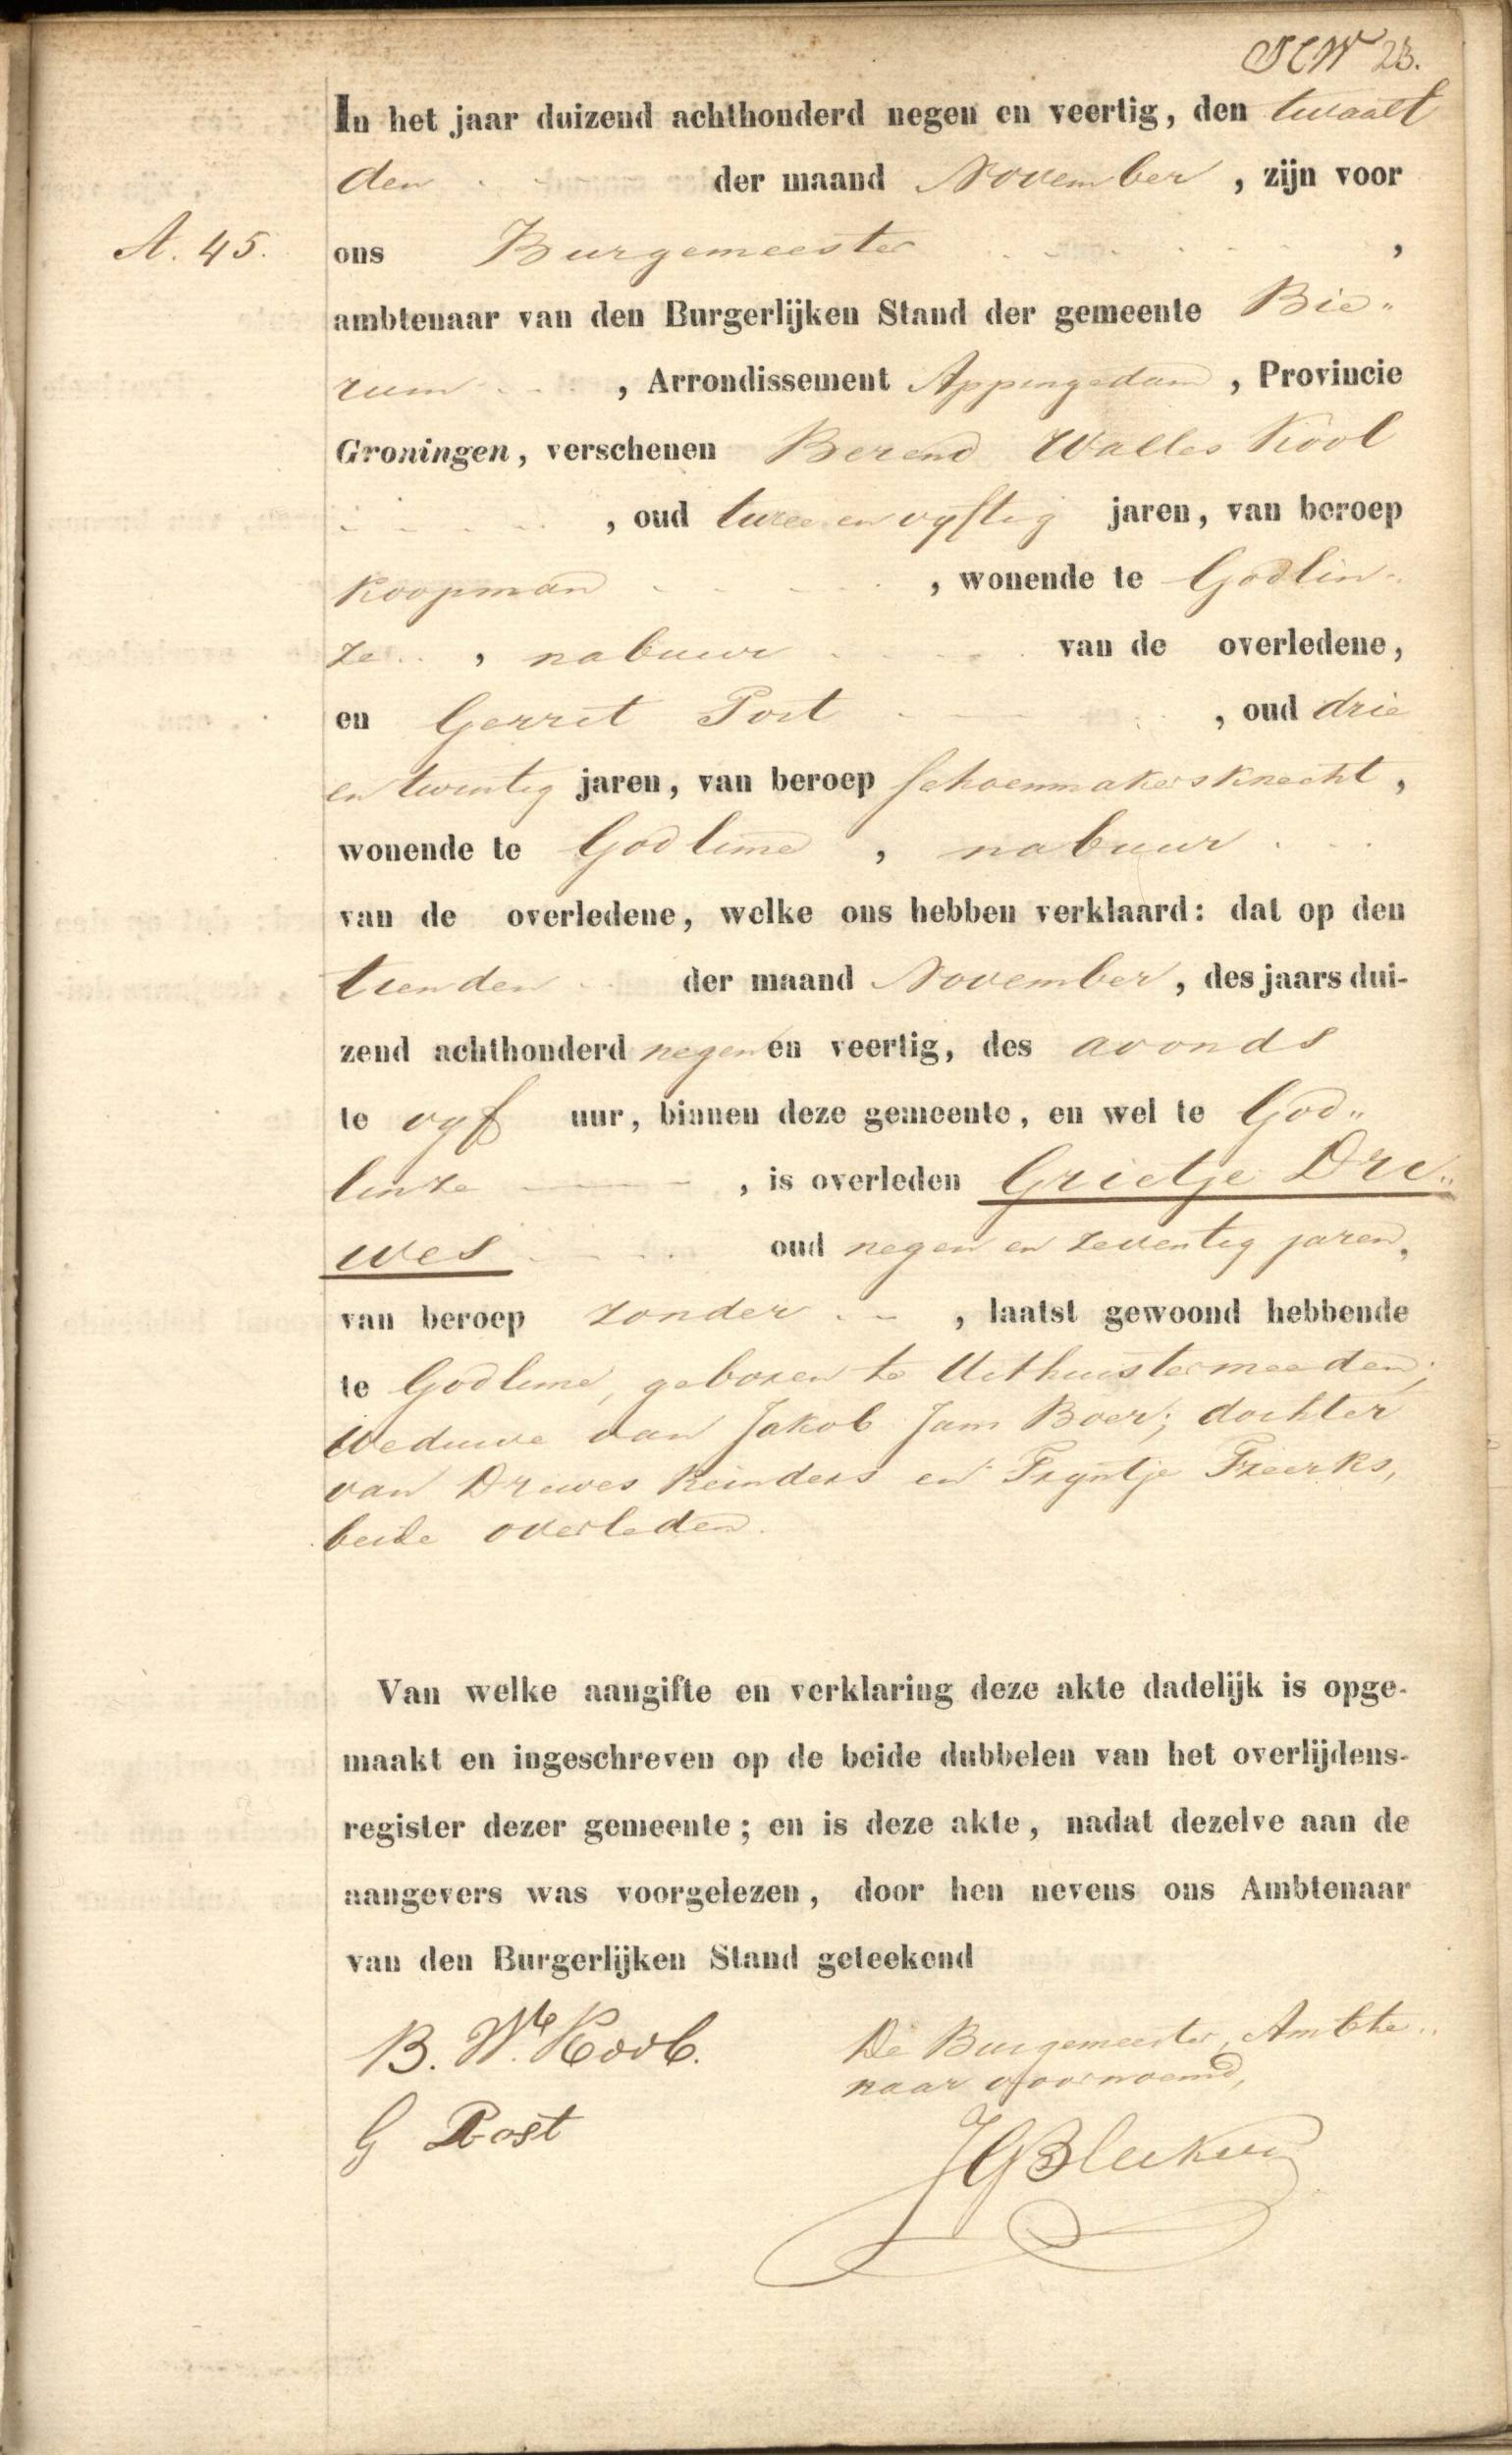 23.
In het jaar duizend achthonderd negen en veertig, den twaalf
den der maand November, zijn voor
A. 45.
ons Burgemeester ,
ambtenaar van den Burgerlijken Stand der gemeente Bie„
rum , Arrondissement Appingedam, Provincie
Groningen, verschenen Berend Walles Kool
, oud twee en vyftig jaren, van beroep
koopman , wonende te Godlin„
ze , nabuur van de overledene,
en Gerrit Post , oud drie
en twintig jaren, van beroep schoenmakersknecht,
wonende te Godlinze , nabuur
van de overledene, welke ons hebben verklaard: dat op den
tienden der maand November, des jaars dui-
zend achthonderd negen en veertig, des avonds
te vyf uur, binnen deze gemeente, en wel te God„
linze , is overleden Grietje Dre„
wes oud negen en zeventig jaren,
van beroep zonder , laatst gewoond hebbende
te Godlinze, geboren te Uithuistermeeden,
Weduwe van Jakob Jans Boer; dochter
van Drewes Reinders en Tryntje Freerks,
beide overleden.
Van welke aangifte en verklaring deze akte dadelijk is opge-
maakt en ingeschreven op de beide dubbelen van het overlijdens-
register dezer gemeente; en is deze akte, nadat dezelve aan de
aangevers was voorgelezen, door hen nevens ons Ambtenaar
van den Burgerlijken Stand geteekend
B. Ws Kool.
De Burgemeester, Ambte„
naar voornoemd,
G Post